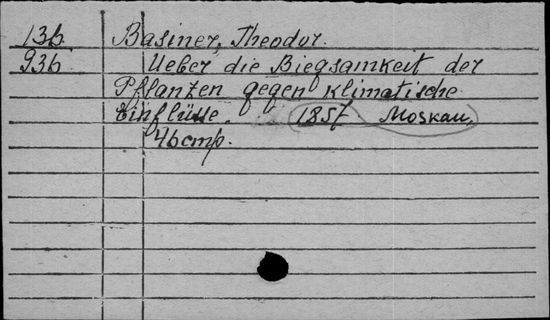 136 Basiner, Theodor.
936 Ueber die Biegsamkeit der
Pflanzen gegen klimatische
Einflüsse. 1857. Moskau.
46 стр.